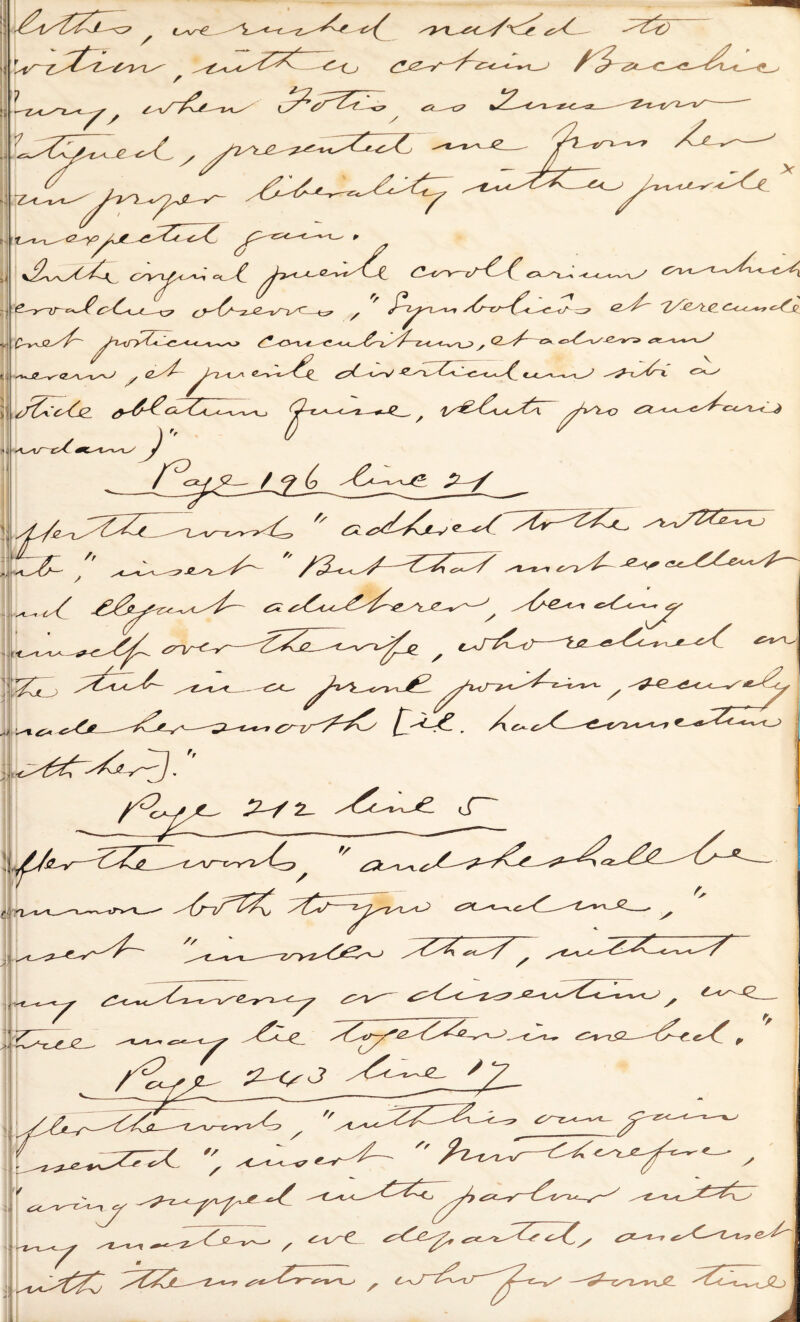 lothes, we rushed naked to
oition, with a certain Bacchic
ury, when Fotis, as I was now
atigued, presented me from her
wn proper liberality with a puerile x
unexpected gain.
In the original puerile corollarium on which
eroaldus observes, "Symbolicôs et verecundè
enet porticum concubitum, et adversam
enerem, et puerile diverticulum sibi à
otide oblatum fuisse, veluti pro auctario
uodam)"
Page 196 line 21
fter the words "adhered to the rotten
ub", insert "But that most excellent
nd elegant adulterer, bending
imself over the wife, who reclined on
the tub in a prone position, securely
made her smooth [i.e. had connection
ith her]."
Page 212 line 5
fter the words, "and she shall be
ommon both to you and me,"
nsert "in order that, without
ny controversy or dissention, we
three may lie together in one bed."
Page 243 line 17
fter the words, "with his own gain
ssented", insert "Now therefore,
aving supped in the parlour with
my master, we departed, and met
with the matron, who for some time